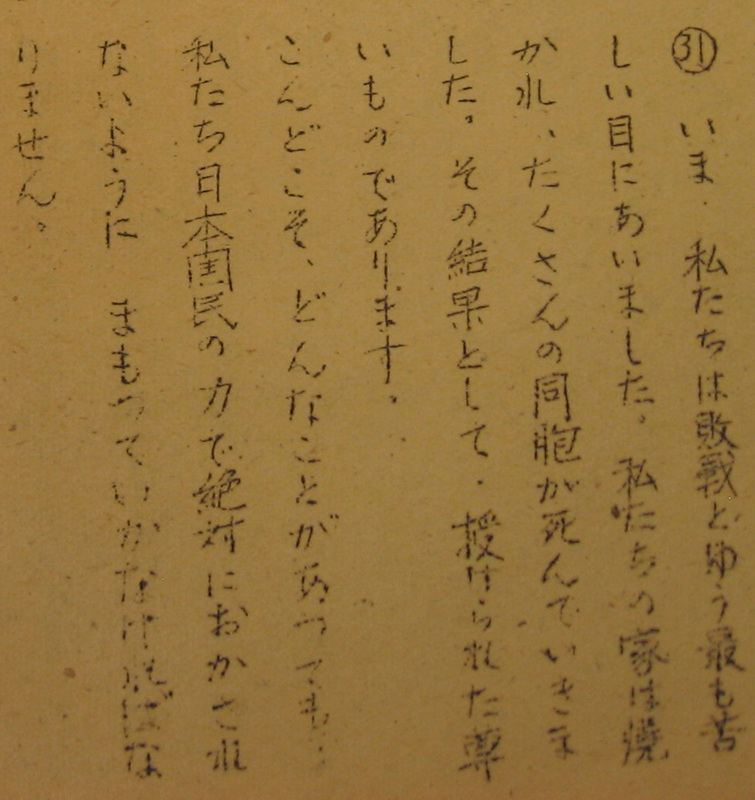 ㉛ いま、私たちは敗戦とゆう最も苦
しい目にあいました。私たちの家は焼
かれ、たくさんの同胞が死んでいきま
した。その結果として、授けられた尊
いものであります。
こんどこそ、どんなことがあっても、
私たち日本国民の力で絶対におかされ
ないように まもっていかなければな
りません。